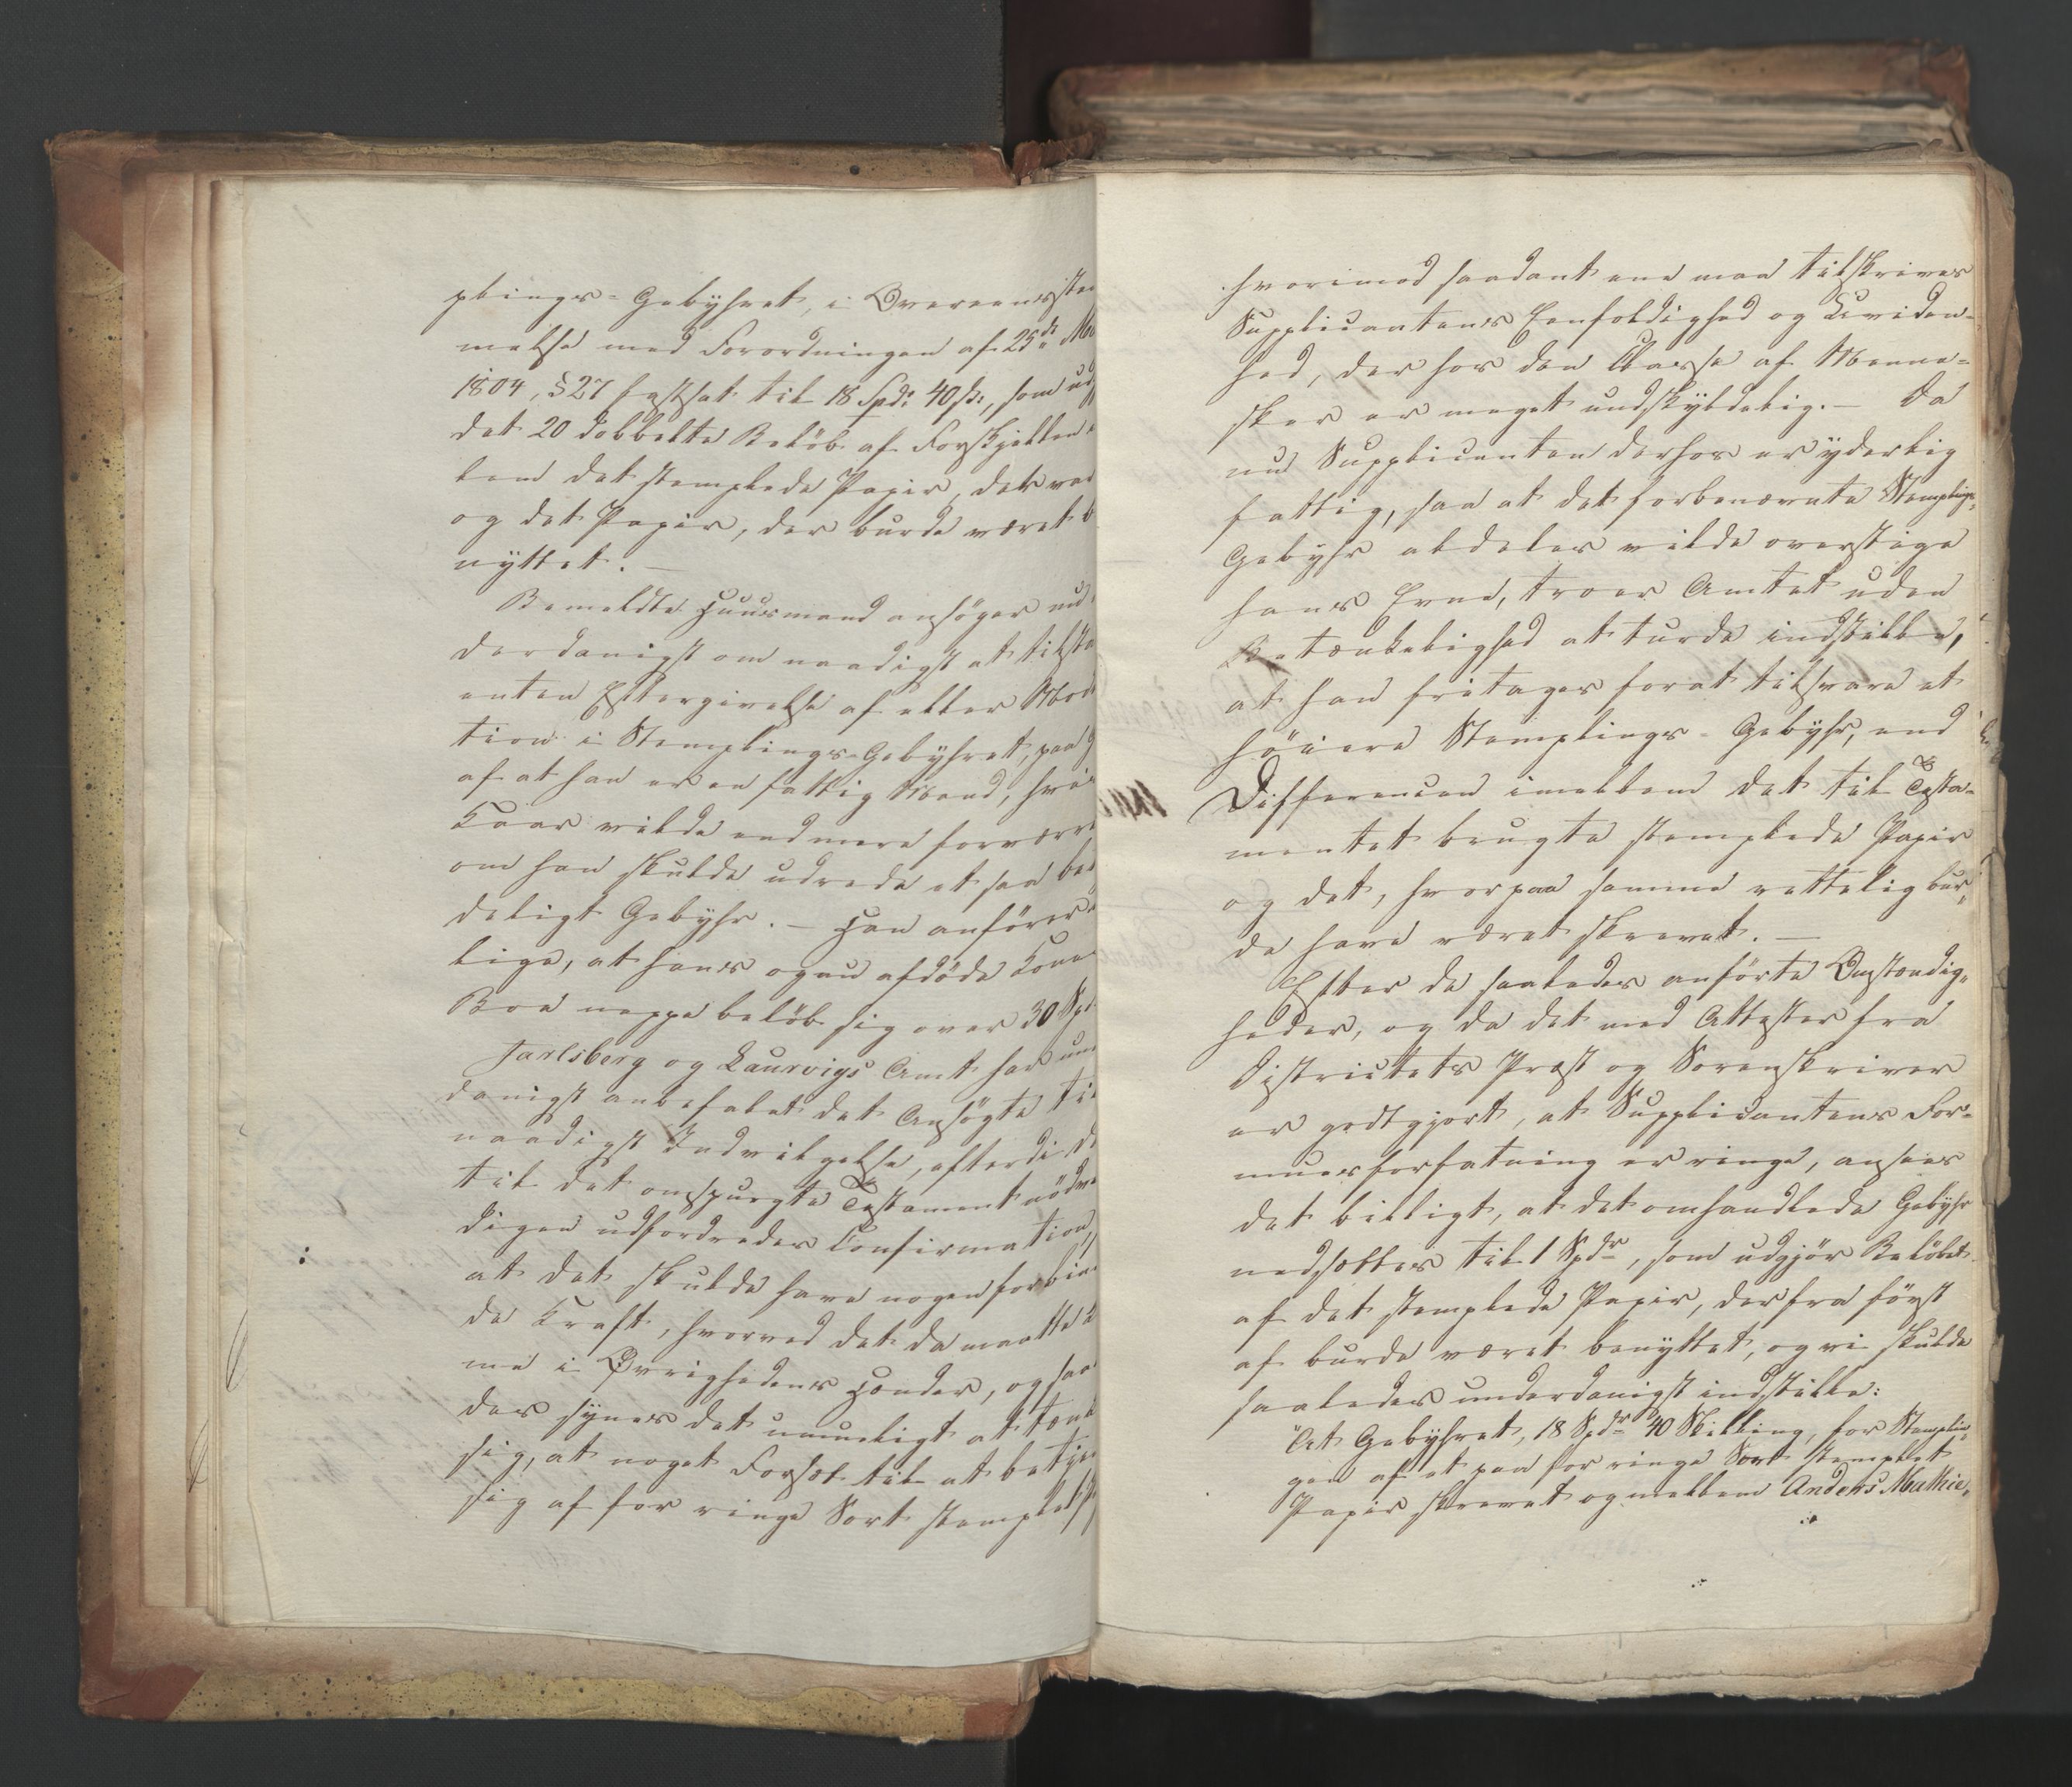 plings-Gebyhret, i Overeensstem
melse med Forordningen af 25de
1804, §27 fastsat til 18 Spd: 40 s:, som ud
det 20 dobbelte Beløb af Forskjellen
lem det stemplede Papir, det var
og det Papir, der burde været b
nyttet. —
Bemeldte Huusmand ansøger un
derdanigst om naadigst at tilsta
enten Eftergivelse af eller Mode
tion i Stemplings-Gebyhret, paa G
af at han er en fattig Mand, hvis
Kaar vilde end mere forværre
om han skulde udrede et saa bet
deligt Gebyhr. — Han anfører
lige, at hans og nu afdøde Kones
Boe neppe beløb sig over 30 Spd
Jarlsberg og Laurvigs Amt har un
danigst anbefalet det Ansøgte til
naadigst Indvilgelse, efterdi de
til det omspurgte Testament nødve
digen udfordredes Confirmation,
at det skulde have nogen forbin
de Kraft, hvorved det da maatte k
me i Øvrighedens Hænder, og saa
des synes det umueligt at tænk
sig, at noget Forsæt til at betjen
sig af for ringe Sort stemplet P
hvorimod saadant ene maa tilskrives
Supplicantens Eenfoldighed og Uviden-
hed, der hos den Classe af Menne-
sker er meget undskyldelig. — Da
nu Supplicanten derhos er yderlig
fattig, saa at det forbenævnte Stemplings-
Gebyhr aldeles vilde overstige
hans Evne, troer Amtet uden
Betænkelighed at turde indstille,
at han fritages for at tilsvare et
høiere Stemplings-Gebyhr, end
Differencen imellem det til Testa-
mentet brugte stemplede Papir
og det, hvorpaa samme rettelig bur-
de have været skrevet. —
Efter de saaledes anførte Omstændig-
heder, og da det med Attester fra
Districtets Præst og Sorenskriver
er godtgjort, at Supplicantens For-
muesforfatning er ringe, ansees
det billigt, at det omhandlede Gebyhr
nedsættes til 1 Spdr, som udgjør Beløbet
af det stemplede Papir, der fra først
af burde været benyttet, og vi skulde
saaledes underdanigst indstille:
"At Gebyhret, 18 Spdr 40 Skilling, for Stemplin-
gen af et paa for ringe Sort stemplet
Papir skrevet og mellem Anders Mathie-